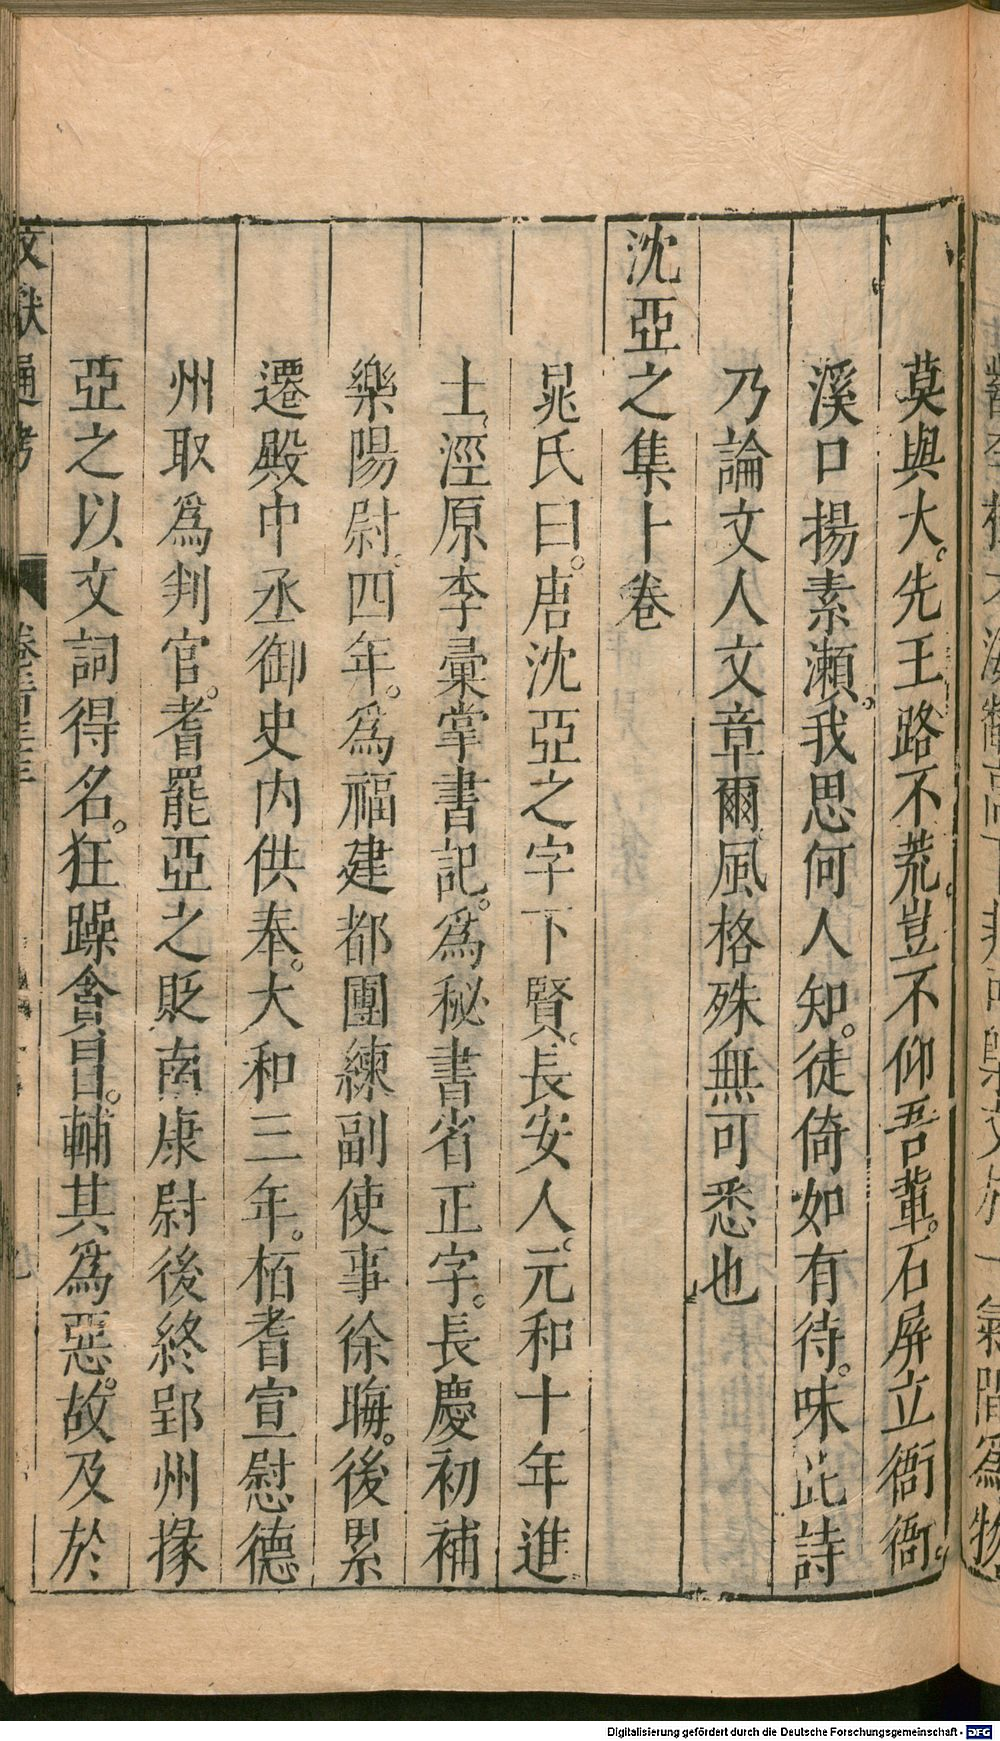 莫與大。先王路不荒。豈不仰吾輩。石屏立衙衙。
溪口揚素瀨。我思何人知。徒倚如有待。味此詩
乃論文人文章爾風格殊無可悉也
沈亞之集十卷
晁氏曰。唐沈亞之字下賢。長安人。元和十年進
士、涇原李彙掌書記。爲秘書省正字。長慶初補
櫟陽尉。四年。爲福建都團練副使事徐晦。後累
遷殿中丞御史内供奉。大和三年。栢耆宣慰德
州取爲判官。耆罷亞之貶南康尉後終郢州掾
亞之以文詞得名。狂躁貪冒。輔其爲惡。故及於
文獻通考
Digitalisierung gefördert durch die Deutsche Forschungsgemeinschaft - DFG